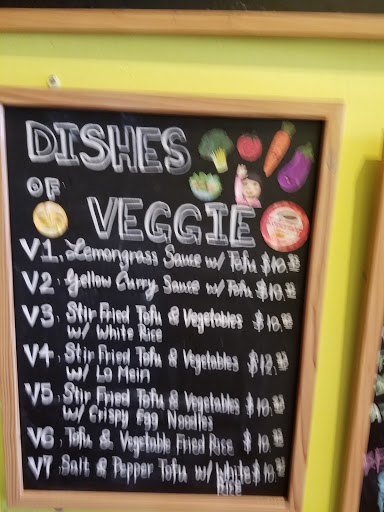 DISHES
OF
VEGGIE
V1. Lemongrass Sauce w/ Tofu $10.
V2. Yellow Curry Sauce w/ Tofu $10.
V3. Stir Fried Tofu & Vegetables $10.
w/ White Rice
V4. Stir Fried Tofu & Vegetables $12.
w/ Lo Mein
V5. Stir Fried Tofu & Vegetables $10.
w/ Crispy Egg Noodles
V6. Tofu & Vegetable Fried Rice $10.
V7. Salt & Pepper Tofu w/ White $10.
Rice